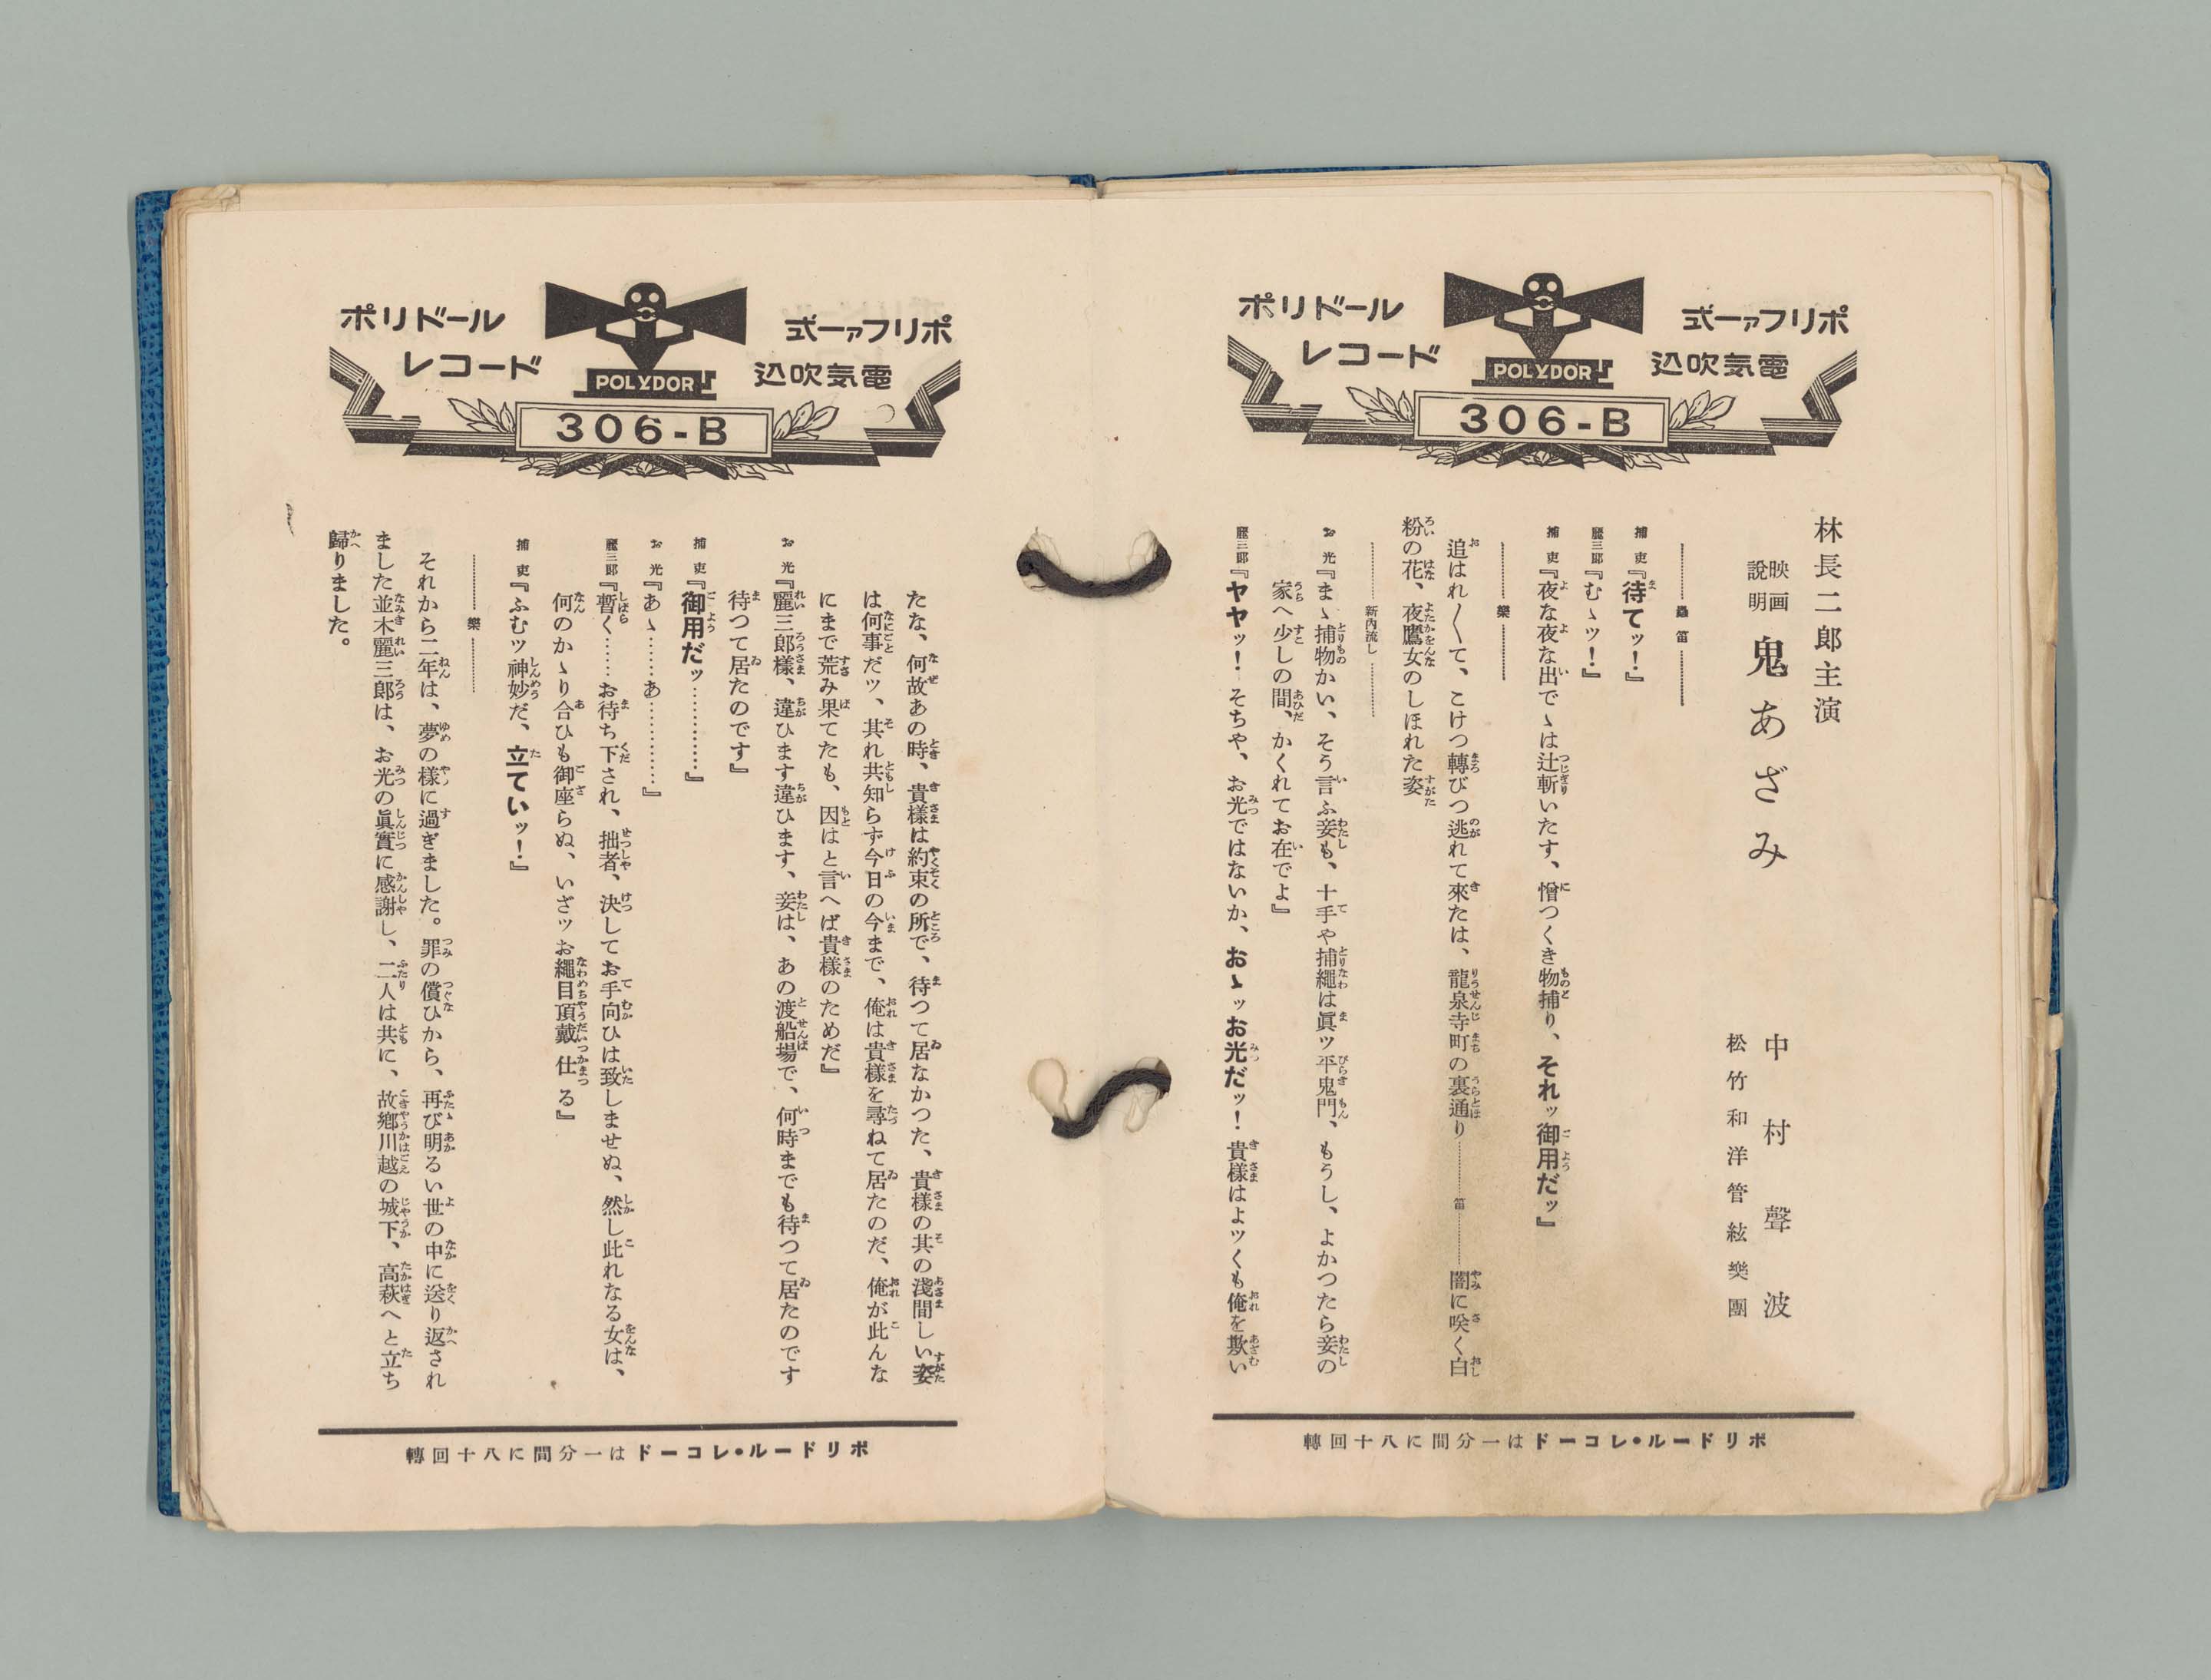 ポリドール
レコード
ポリファー式
電気吹込
POLYDOR
306-B
林長二郎主演
映画説明 鬼あざみ
中村聲波
松竹和洋管絃樂團
蟲笛
捕吏『待てッ!』
麗三郎『むゝッ!』
捕吏『夜な夜な出でゝは辻斬いたす、憎つくき物捕り、それッ御用だッ』
樂
追はれ〱て、こけつ轉びつ逃れて來たは、龍泉寺町の裏通り………笛………闇に咲く白
粉の花、夜鷹女のしほれた姿
新内流し
お光『まゝ捕物かい、そう言ふ妾も、十手や捕繩は眞ッ平鬼門、もうし、よかつたら妾の
家へ少しの間、かくれてお在でよ』
麗三郎『ヤヤッ! そちや、お光ではないか、おゝッお光だッ! 貴樣はよッくも俺を欺い
ポリドール・レコードは一分間に八十回轉
ポリドール
レコード
ポリファー式
電気吹込
POLYDOR
306-B
たな、何故あの時、貴樣は約束の所で、待つて居なかつた、貴樣の其の淺間しい姿
は何事だッ、其れ共知らず今日の今まで、俺は貴樣を尋ねて居たのだ、俺が此んな
にまで荒み果てたも、因はと言へば貴樣のためだ』
お光『麗三郎樣、違ひます違ひます、妾は、あの渡船場で、何時までも待つて居たのです
待つて居たのです』
捕吏『御用だッ…………』
お光『あゝ……あ…………』
麗三郎『暫く……お待ち下され、拙者、決してお手向ひは致しませぬ、然し此れなる女は、
何のかゝり合ひも御座らぬ、いざッお繩目頂戴仕る』
捕吏『ふむッ神妙だ、立ていッ!』
樂
それから二年は、夢の樣に過ぎました。罪の償ひから、再び明るい世の中に送り返され
ました並木麗三郎は、お光の眞實に感謝し、二人は共に、故鄕川越の城下、高萩へと立ち
歸りました。
ポリドール・レコードは一分間に八十回轉